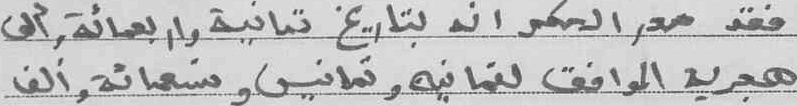 فقد صدر الحكم انه بتاريخ ثمانية واربعمائة وألف
هجرية الموافق لثمانية وثمانين وتسعمائة وألف